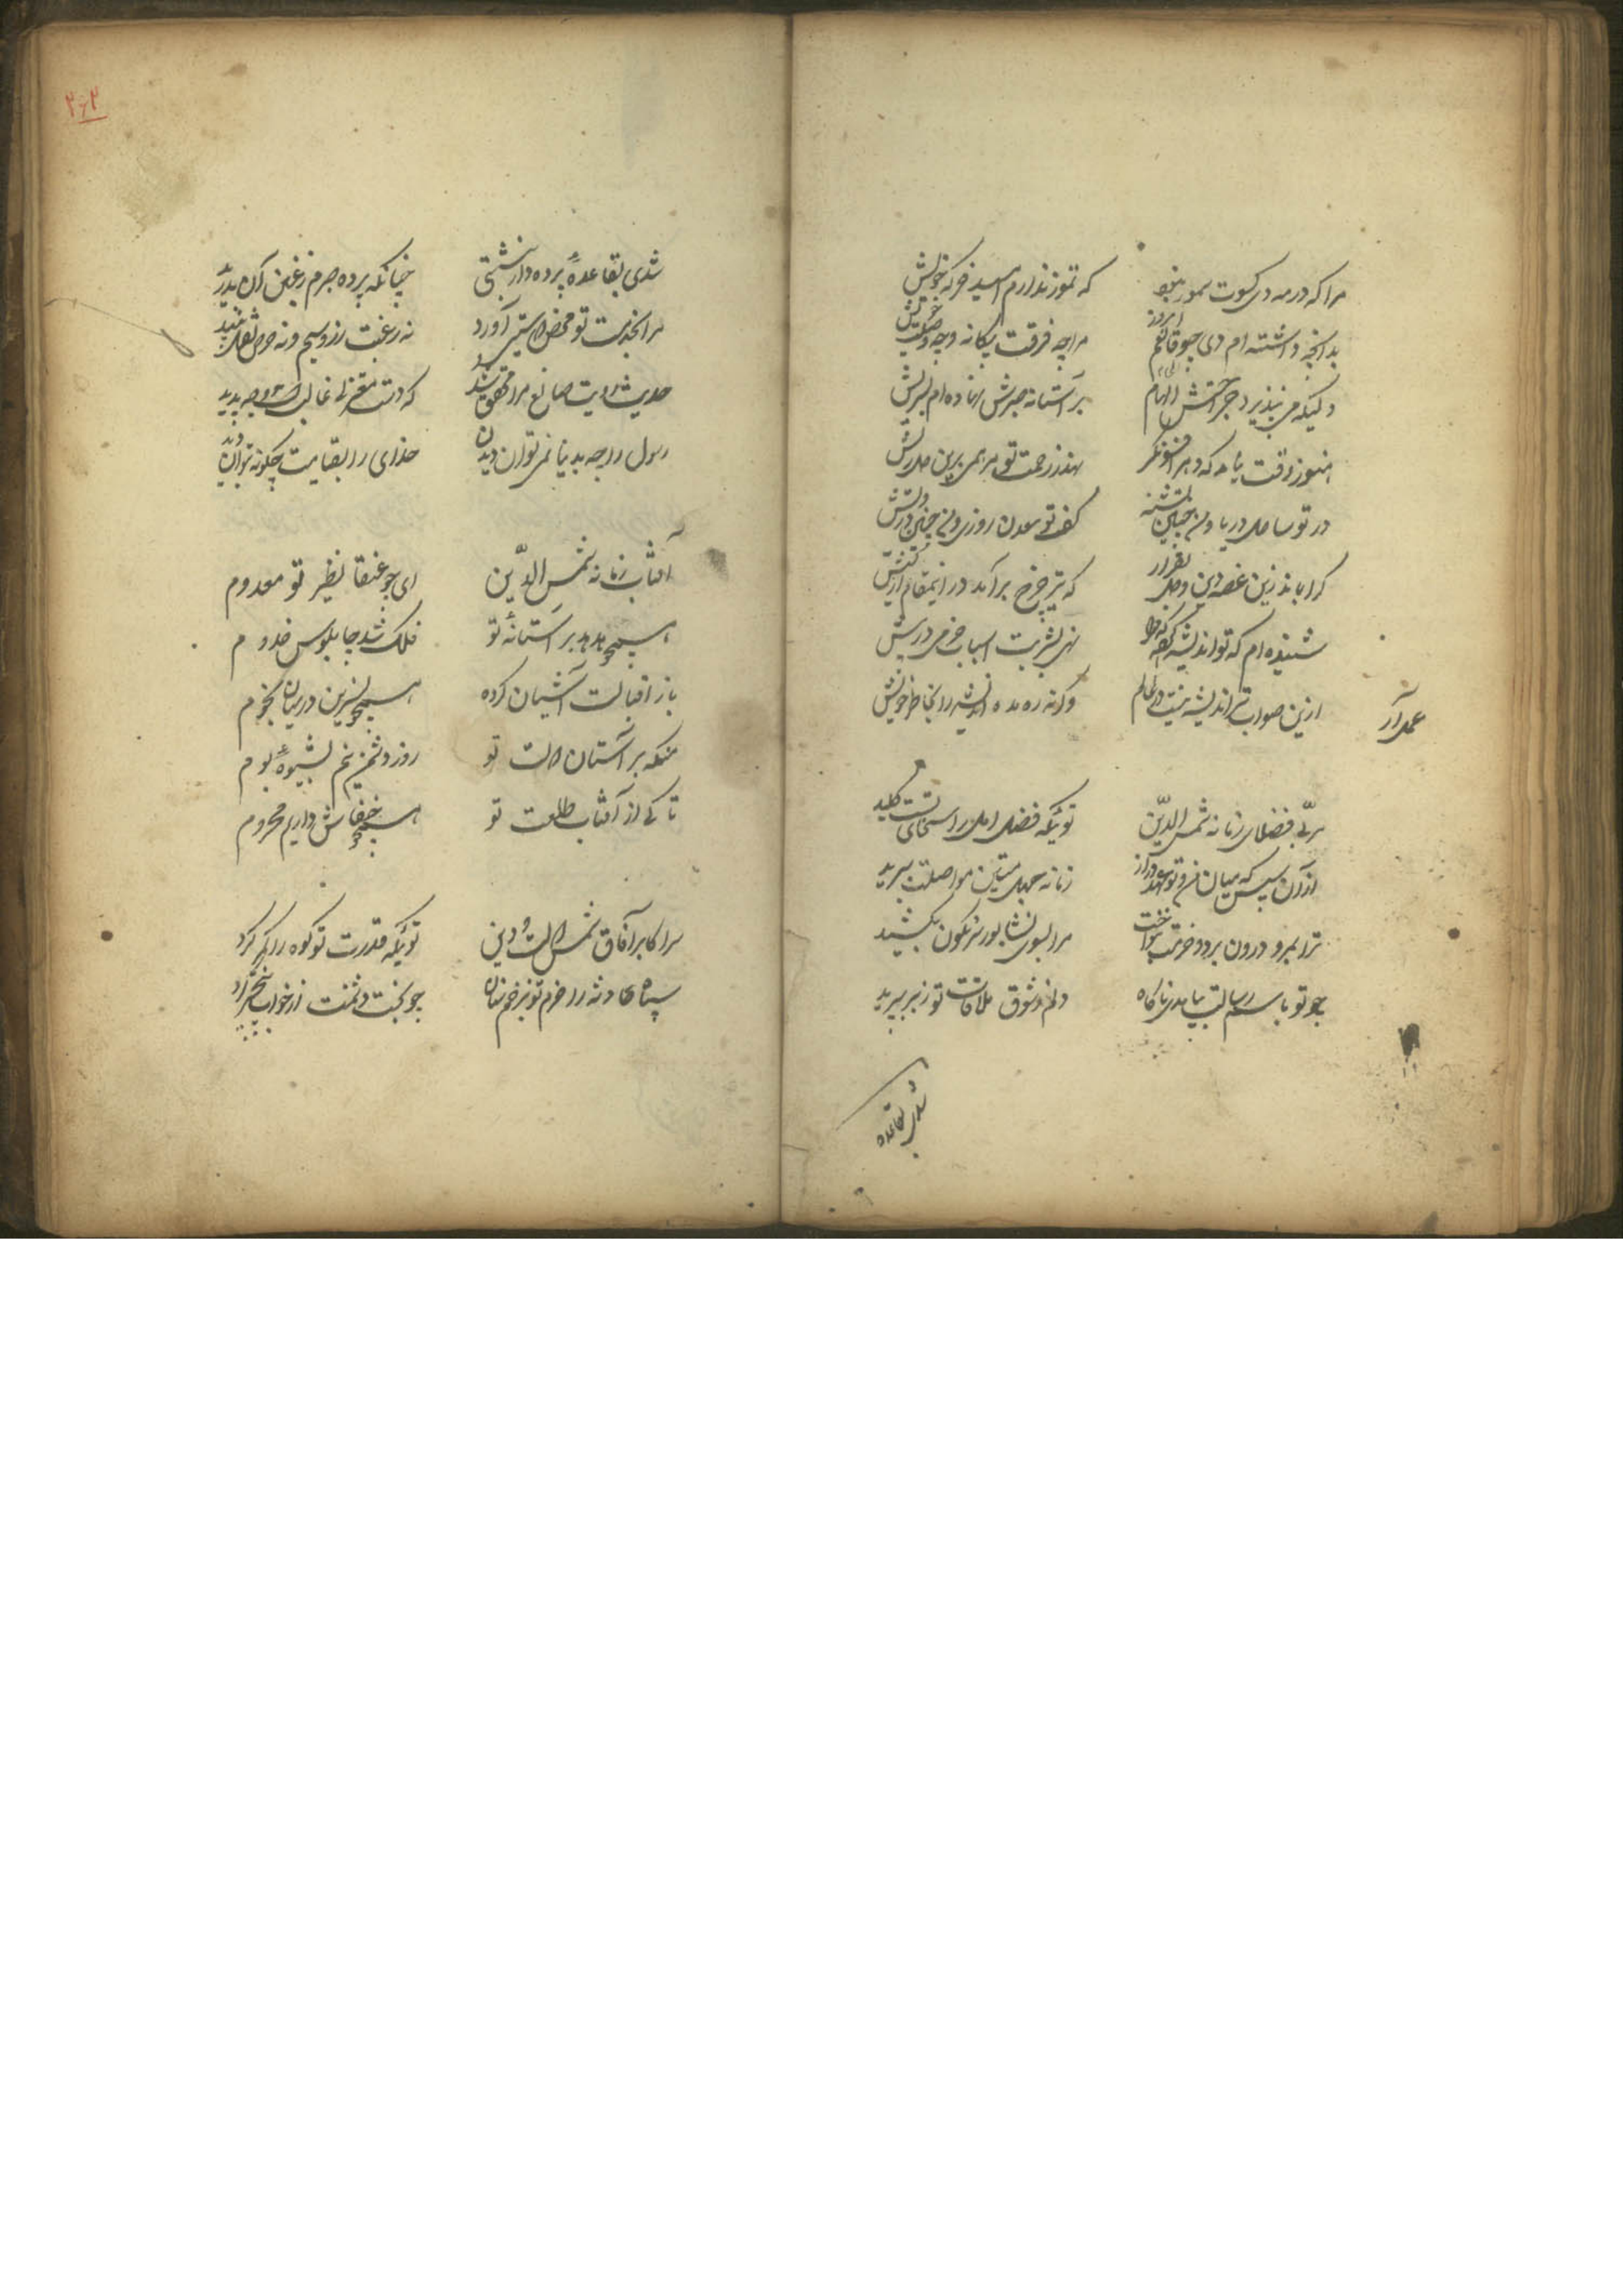 مرا که در مه دی کسوت سمور نبود که تموز ندارم امید خرگه خویش
بدانچه داشته ام دی چو قانعم امروز مرا چه فرقت بیگانه و چه وصلت خویش
ولیکه می نپذیرد جراحتش الیام بر آستانه صبرش نهاده ام سر ریش
هنوز وقت نیامد که دهر افسونگر نهد ز رحمت تو مرهمی برین دل ریش
در تو ساحل دریا و من چنین تشنه کف تو معدن روزی و من چنین درویش
کرا بماند زین غصه دین و دل بقرار که تیر چرخ برآمد درین مقام از کیش
شنیده ام که تو اندیشه کرده که مرا نهی بشربت اسباب خرمی در پیش
ازین صواب تر اندیشه نیست در عالم وگرنه ره مده اندیشه را بخاطر خویش
عمل آر
مربی فضلای زمانه شمس الدین توئیکه فضل امل را سخای تست کلید
از آن سپس که میان من و تو عهد دراز زمانه حبل متین مواصلت ببرید
ترا بمرو درون برد و خرمت بنواخت مرا بسوی نشابور سرنگون بکشید
چو تو باسم رسالت بیامدی ناگاه دلم ز شوق ملاقات تو ز بر بپرید
شدی بقاعده
۲۶۲
شدی بقاعدهٔ پرده دار نشستی چنانکه پرده صبرم ز غبن آن بدرید
مرا بخدمت تو محض دوستی آورد نه رغبت زر و سیم و نه حرص نقل و نبید
حدیث رؤیت صانع مرا محقق شد که دست معتزلی غالبست و وجه پدید
رسول را چو بدنیا نمی توان دیدن خدای را بقیامت چگونه بتوان دید
آفتاب زمانه شمس الدین ای چو عنقا نظیر تو معدوم
همچو هدهد بر آستانهٔ تو فلک شد چاپلوس خدوم
باز اقبالت آشیان کرده همچو نسرین در میان نجوم
منکه بر آستان دولت تو روز دشمن نیم بشیوهٔ بوم
تا کی از آفتاب طلعت تو همچو خفاش داریم محروم
سر اکابر آفاق شمس دولت و دین توئیکه قدرت تو کوه را کمر گیرد
سپاه حادثه را حزم تو بزخم سنان چو بخت دشمنت از خواب بیخبر گیرد